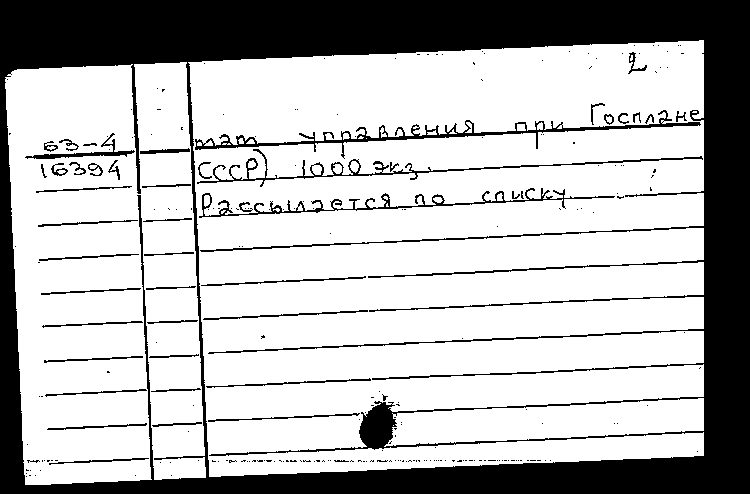 2
63-4 тат управления при Госплане
16394 СССР). 1000 экз.
Рассылается по списку.